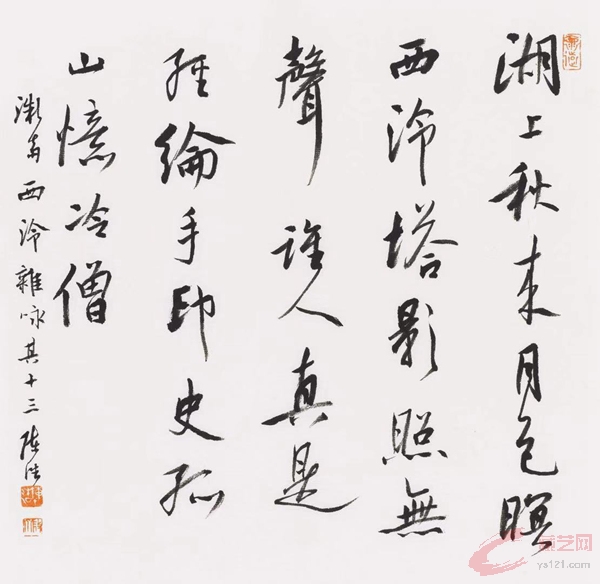 湖上秋来月色暝
西泠塔影照無
聲誰人真是
經綸手印史孤
山憶冷僧
西泠雜咏其十三
艺网
ys121.com